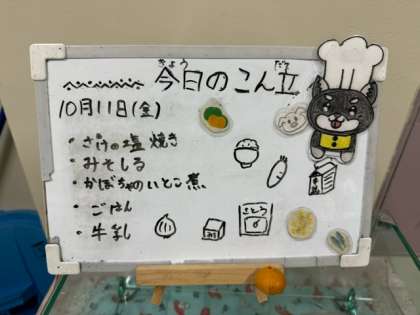 きょう だて
今日のこん立
10月11日(金)
・さけの塩焼き
・みそしる
・かぼちゃのいとこ煮
・ごはん
・牛乳
さとう